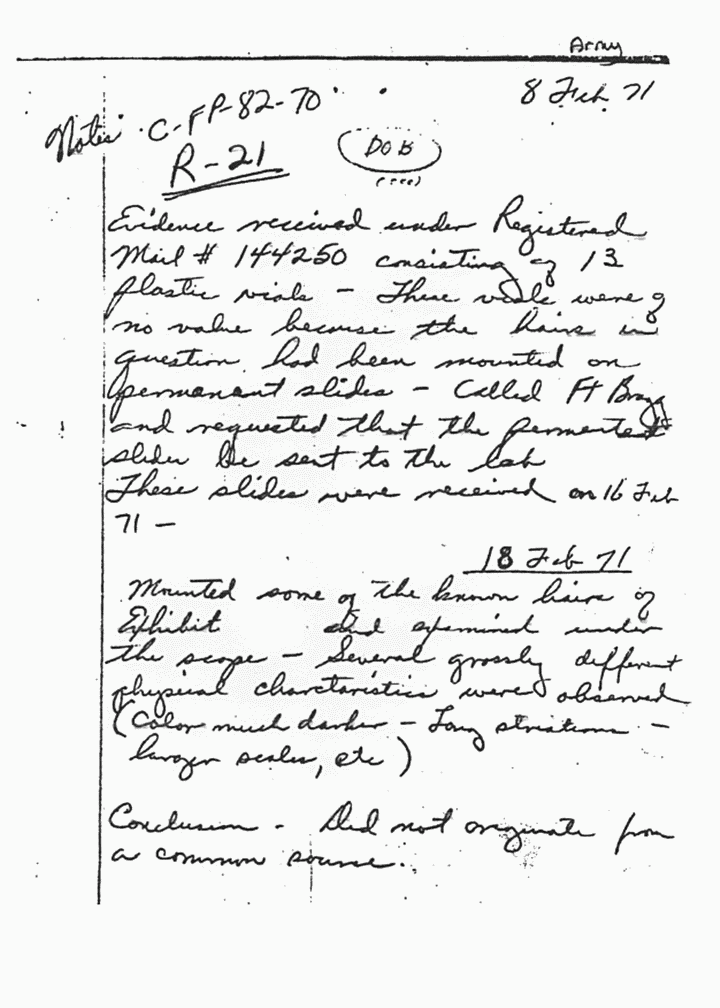 Army
8 Feb 71
Notes C-FP-82-70
R-21
DOB
Evidence received under Registered
Mail # 144250 consisting of 13
plastic vials - These vials were of
no value because the hairs in
question had been mounted on
permanant slides - Called Ft Bragg
and requested that the
slides be sent to the lab
These slides were received on 16 Feb
71 -
18 Feb 71
Mounted some of the known hairs of
Exhibit and examined under
the scope - Several grossly different
physical charctaristics were observed
(Color much darker - Long striations -
larger scales, etc)
Conclusion - Did not originate from
a common source.